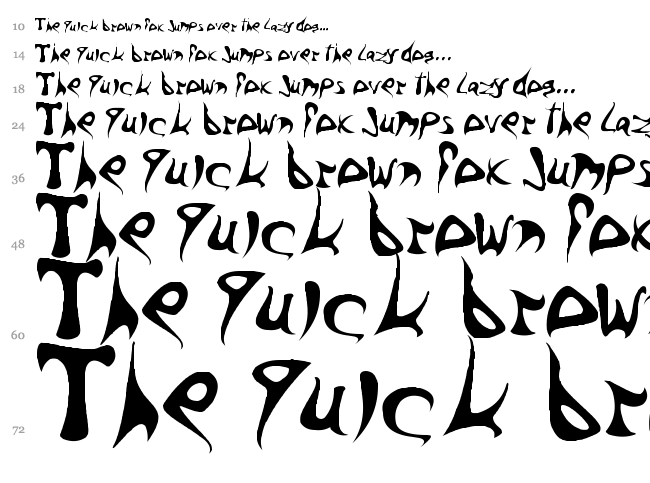 10 The quick brown fox jumps over the lazy dog...
14 The quick brown fox jumps over the lazy dog...
18 The quick brown fox jumps over the lazy dog...
24 The quick brown fox jumps over the laz
36 The quick brown fox jumps
48 The quick brown fox
60 The quick brown
72 The quick br